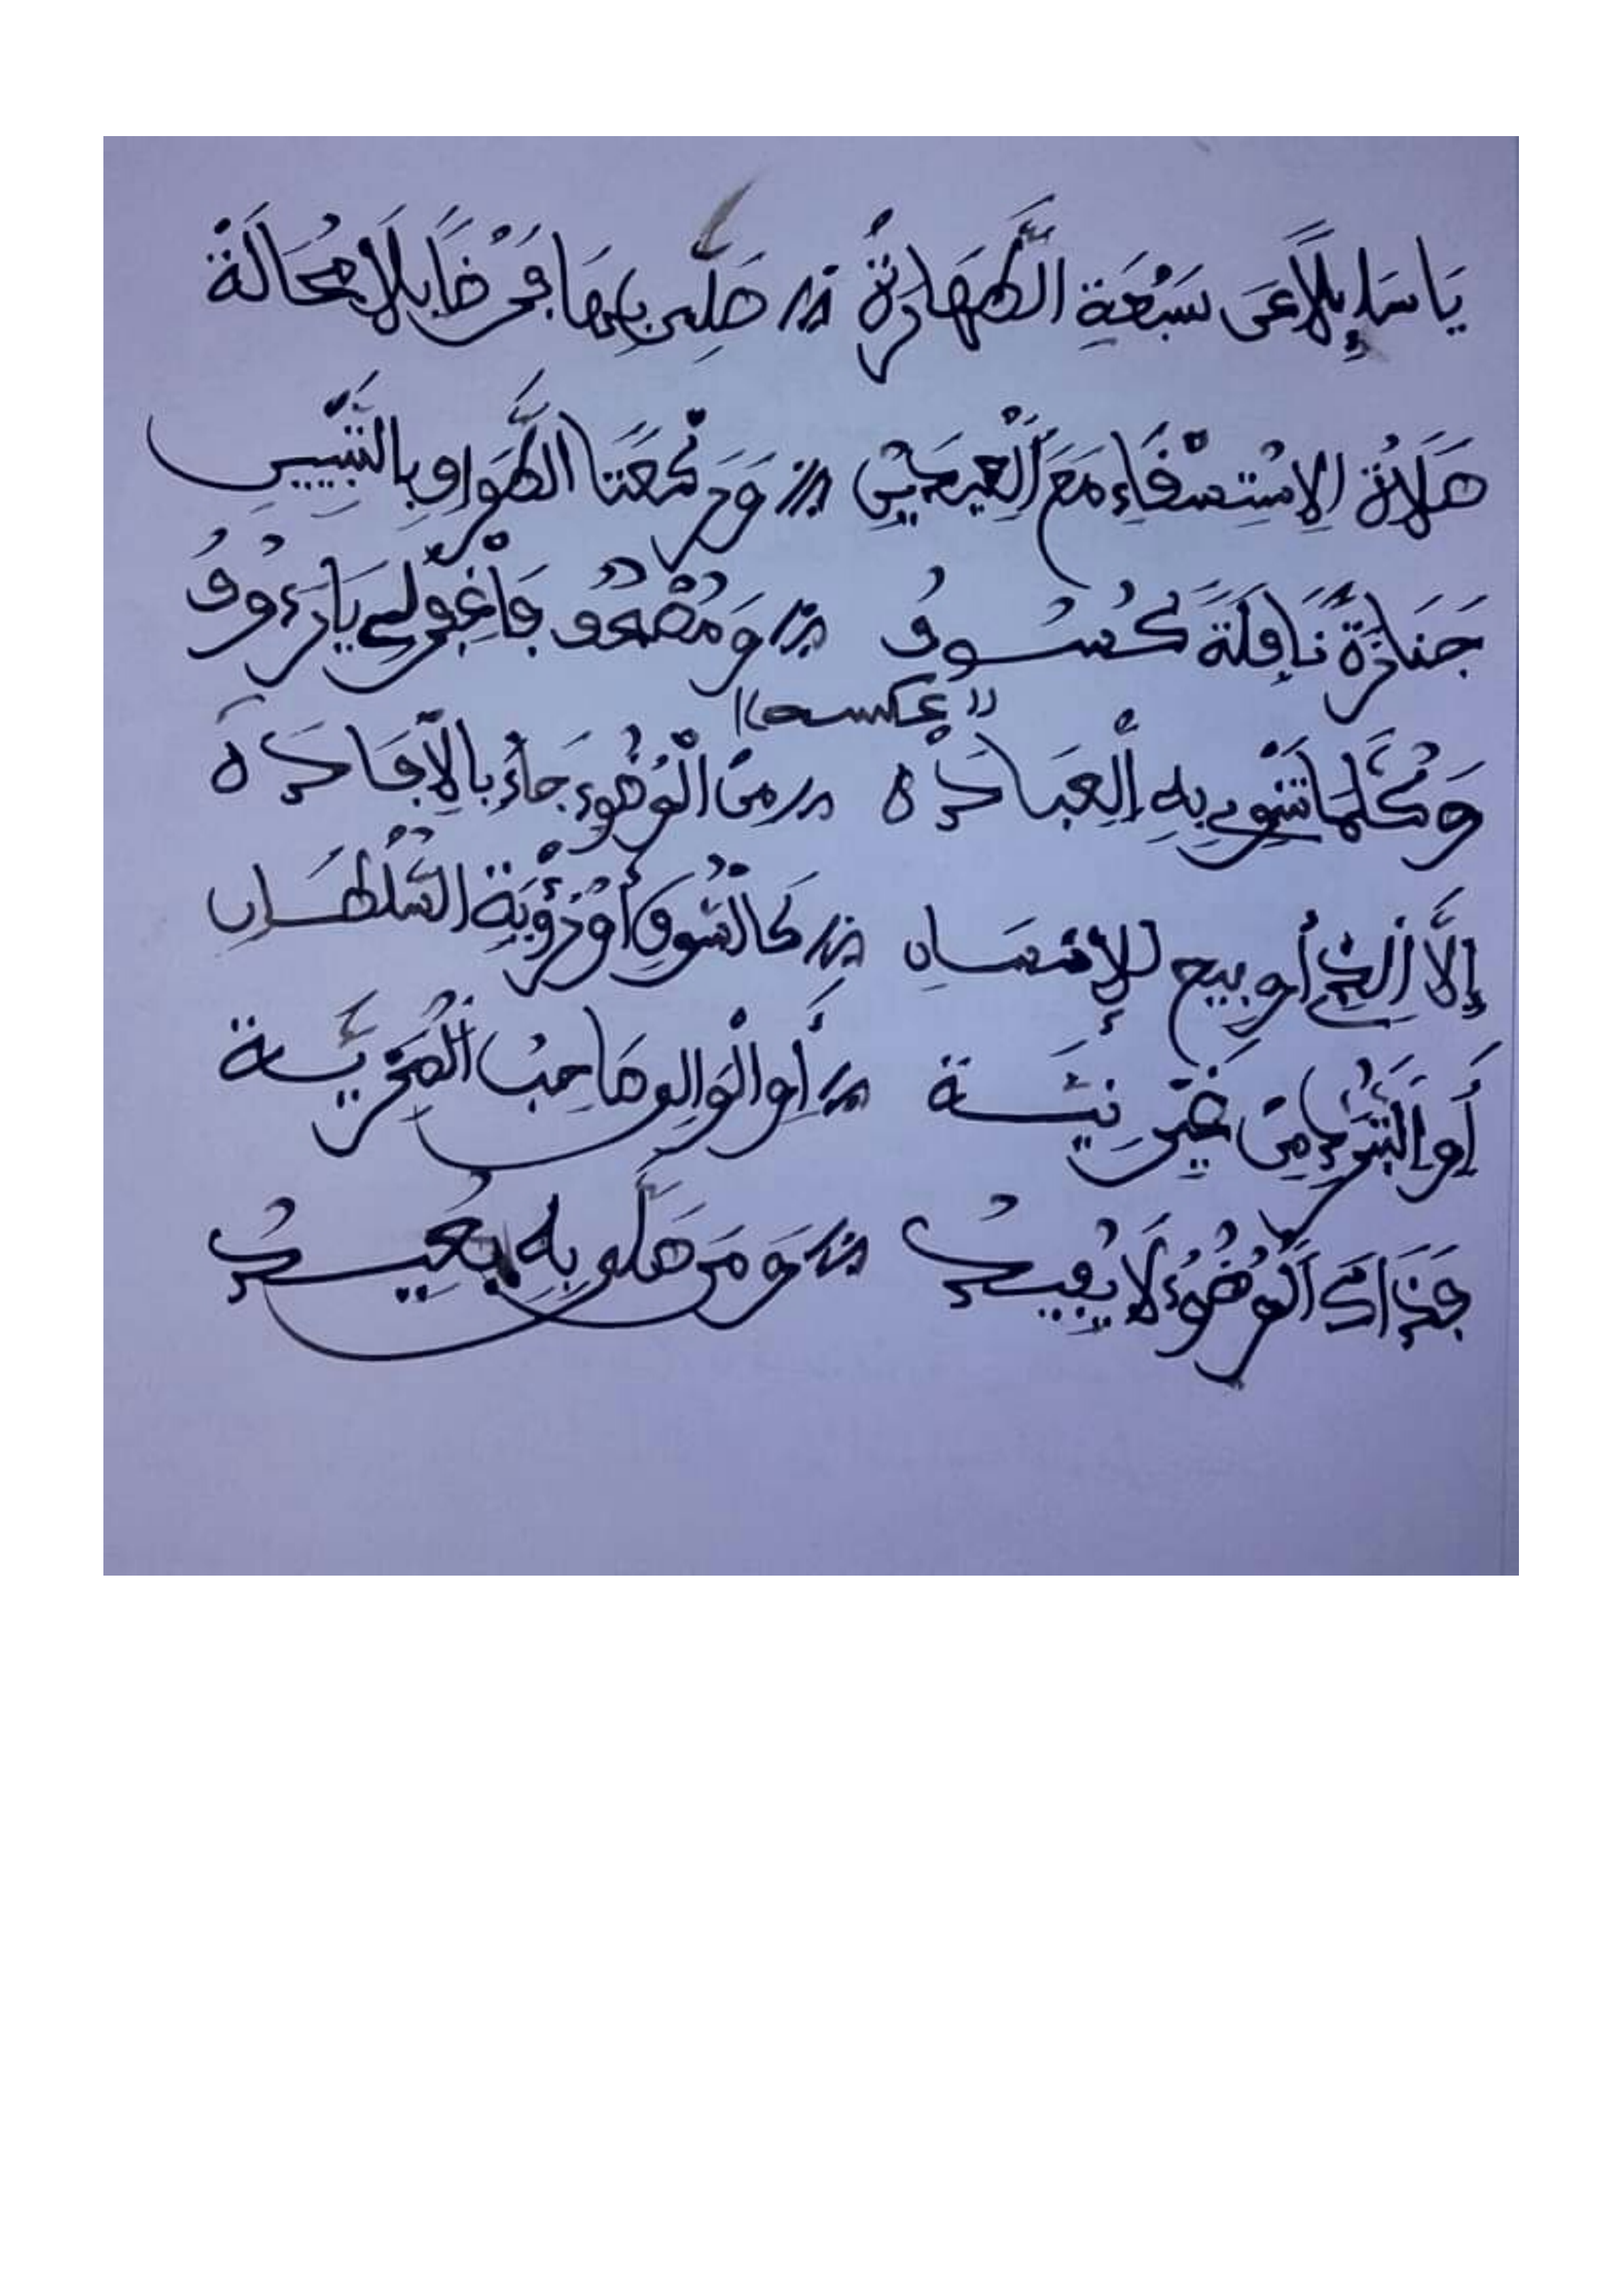 يَا سَايِلًا عَنْ سَبْعَةِ الطَّهَارَةْ ؞ صَلِّ بِهَا فَرْضًا بِلَا مُحَالَةْ
صَلَاةُ الِاسْتِسْقَاءِ مَعَ الْعِيدَيْنِ ؞ وَرَكْعَتَا الطَّوَافِ بِالتَّبْيِينِ
جَنَازَةٌ نَافِلَةٌ كُسُوفُ ؞ وَمُصْحَفٌ فَاغْفِرْ لِي يَا رَءُوفُ
"عكسه"
وَكُلَّمَا تَنْوِي بِهِ الْعِبَادَهْ ؞ مِنَ الْوُضُوءِ جَاءَ بِالْإِفَادَهْ
إِلَّا الذي أُبِيحَ لِلْإِنْسَانِ ؞ كَالسُّوقِ أَوْ رُؤْيَةِ السُّلْطَانِ
أَوِ التَّبَرُّدِ مِنْ غَيْرِ نِيَّةْ ؞ أَوِ الْوَالِي صَاحِبُ الْمَزِيَّةْ
فَذَاكَ الْوُضُوءُ لَا يُفِيدُ ؞ وَمَنْ صَلَّى بِهِ يُعِيدُ